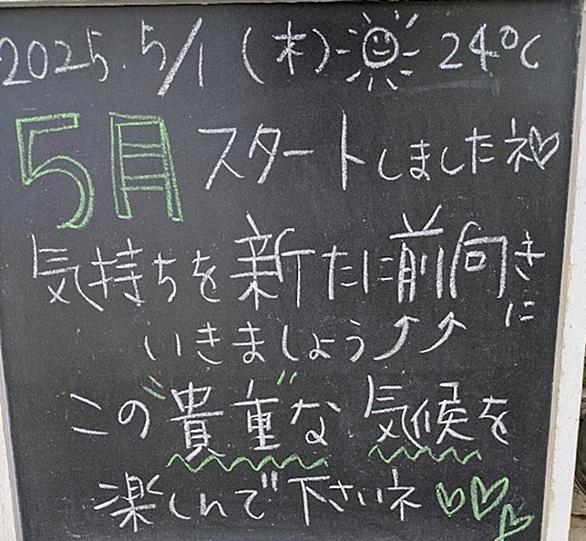 2025. 5/1 (木) 24℃
5月 スタートしましたネ♡
気持ちを新たに前向きに
いきましょう⤴⤴
この"貴重"な気候を
楽しんで下さいネ♡♡♡